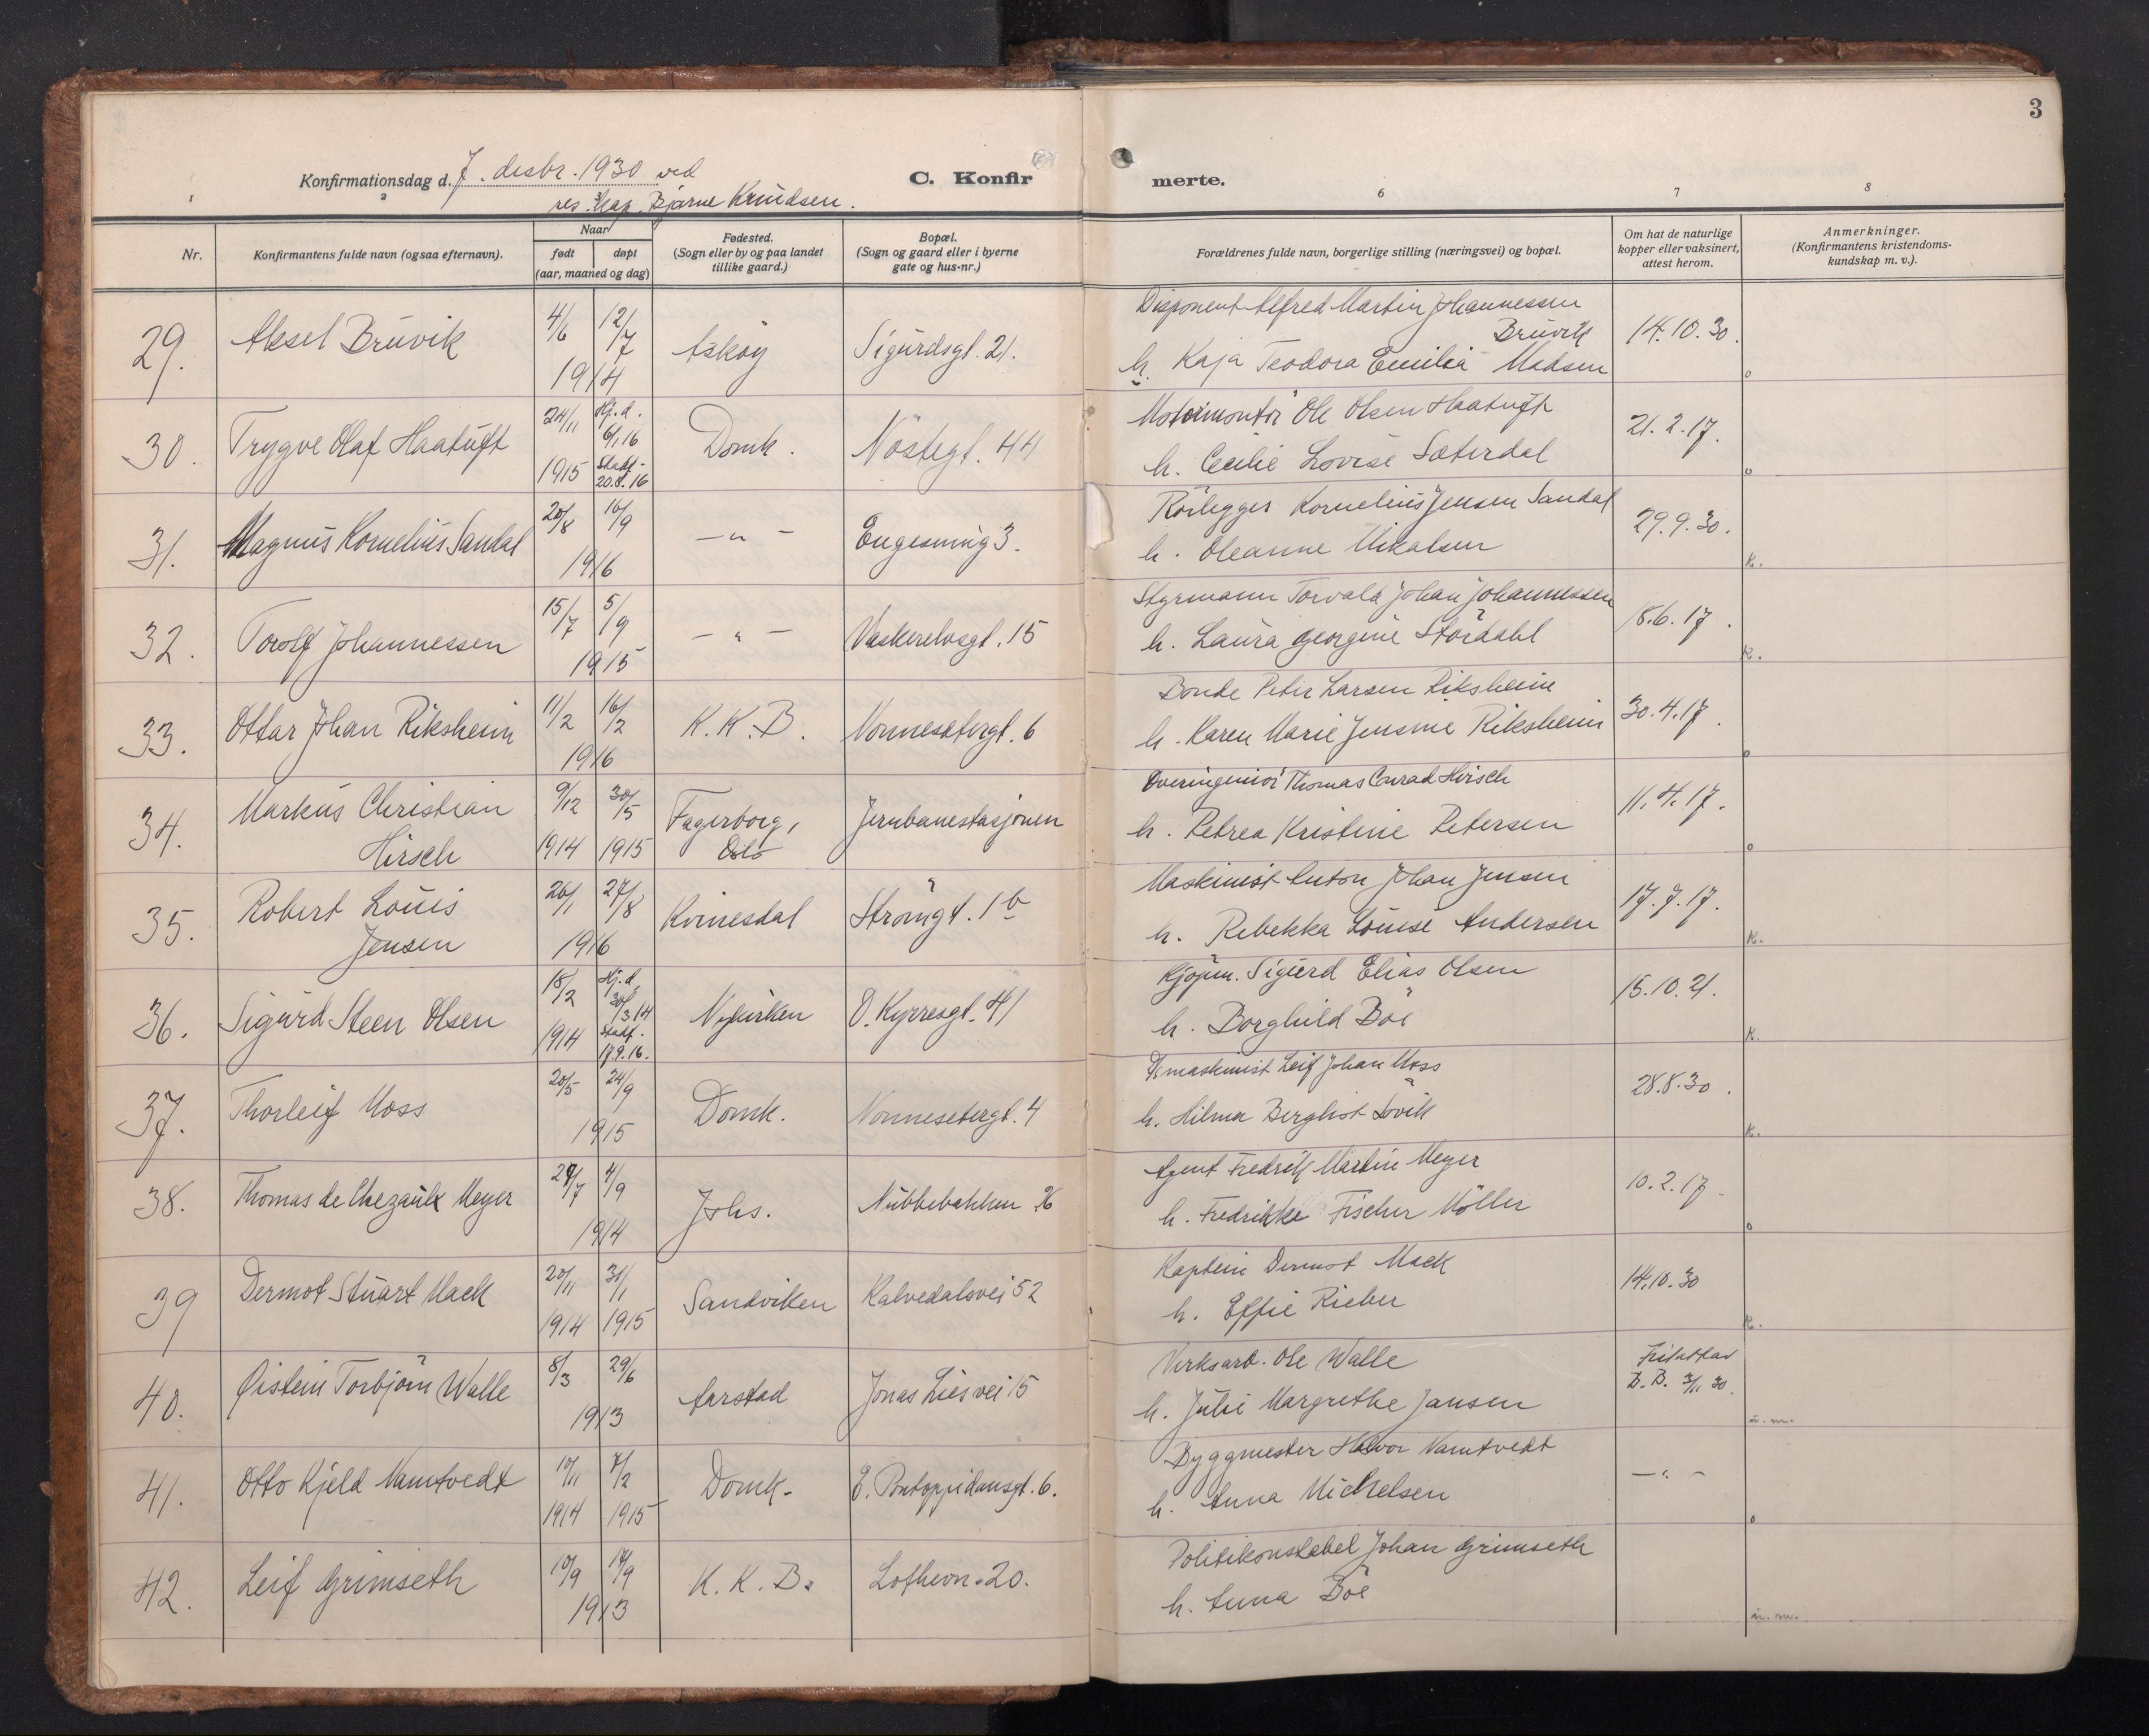 3
Konfirmationsdag d. 7. desbr. 1930 ved
res. kap. Bjarne Knudsen.
C. Konfir
merte.
1 2 6 7 8
Nr.
Konfirmantens fulde navn (ogsaa efternavn).
Naar
født døpt
(aar, maaned og dag)
Fødested.
(Sogn eller by og paa landet
tillike gaard.)
Bopæl.
(Sogn og gaard eller i byerne
gate og hus-nr.)
Forældrenes fulde navn, borgerlige stilling (næringsvei) og bopæl.
Om hat de naturlige
kopper eller vaksinert,
attest herom.
Anmerkninger.
(Konfirmantens kristendoms-
kundskap m. v.).
29. Aksel Bruvik 4/6 12/7 1914 Askøy Sigurdsgt. 21.
Disponent Alfred Martin Johannessen
Bruvik
h. Kaja Teodora Emilia Madsen 14.10.30. o
30. Trygve Olaf Haatuft 24/11 1915 Hj.d. 6/1 16 Stadf. 20.8.16 Domk. Nöstegt. 44
Motormontör Ole Olsen Haatuft
h. Cecilie Lovise Sæterdal 21.2.17. o
31. Magnus Kornelius Sandal 20/8 10/9 1916 — " — Engesmug 3.
Rörlegger Kornelius Jensen Sandal
h. Oleanne Mikalsen 29.9.30. K.
32. Torolf Johannessen 15/7 5/9 1915 — " — Vaskerelvsgt. 15
Styrmann Torvald Johan Johannessen
h. Laura Georgine Stördahl 18.6.17. K.
33. Ottar Johan Riksheim 11/2 16/2 1916 K. K. B. Nonnesetergt. 6
Bonde Peter Larsen Riksheim
h. Karen Marie Jensine Riksheim 30.4.17. o
34. Markus Christian
Hirsch 9/12 1914 30/5 1915 Fagerborg,
Oslo Jernbanestasjonen
Overingeniör Thomas Conrad Hirsch
h. Petrea Kristine Petersen 11.4.17. o
35. Robert Louis
Jensen 26/1 27/8 1916 Kvinesdal Strömgt. 1b
Maskinist Anton Johan Jensen
h. Rebekka Louise Andersen 17.7.17. K.
36. Sigurd Steen Olsen 18/2 1914 Hj.d. 30/3 14 Stadf. 17.9.16. Nykirken O. Kyrresgt. 41
Kjöpm. Sigurd Elias Olsen
h. Borghild Böe 15.10.21. K.
37. Thorleif Moss 20/5 24/9 1915 Domk. Nonnesetergt. 4
maskinist Leif Johan Moss
h. Hilma Berglist Lövik 28.8.30. K.
38. Thomas de Chezaulx Meyer 29/7 4/9 1914 Johs. Nubbebakken 26
Agent Fredrik Martin Meyer
h. Fredrikke Fischer Möller 10.2.17 o
39 Dermot Stuart Mack 20/11 1914 31/1 1915 Sandviken Kalvedalsvei 52
Kaptein Dermot Mack
h. Effie Rieber 14.10.30 K.
40. Øistein Torbjörn Walle 8/3 29/6 1913 Aarstad Jonas Liesvei 15
Verksarb. Ole Walle
h. Julie Margrethe Jansen Fritattat
B. B. 3/11 30. u. m.
41. Otto Kjeld Namtvedt 10/11 1914 7/2 1915 Domk. E. Pontoppidansgt. 6.
Byggmester Halvor Namtvedt
h. Anna Michelsen — " — o
42. Leif Grimseth 10/9 14/9 1913 K. K. B. Lothevn. 20.
Politikonstabel Johan Grimseth
h. Anna Böe u. m.